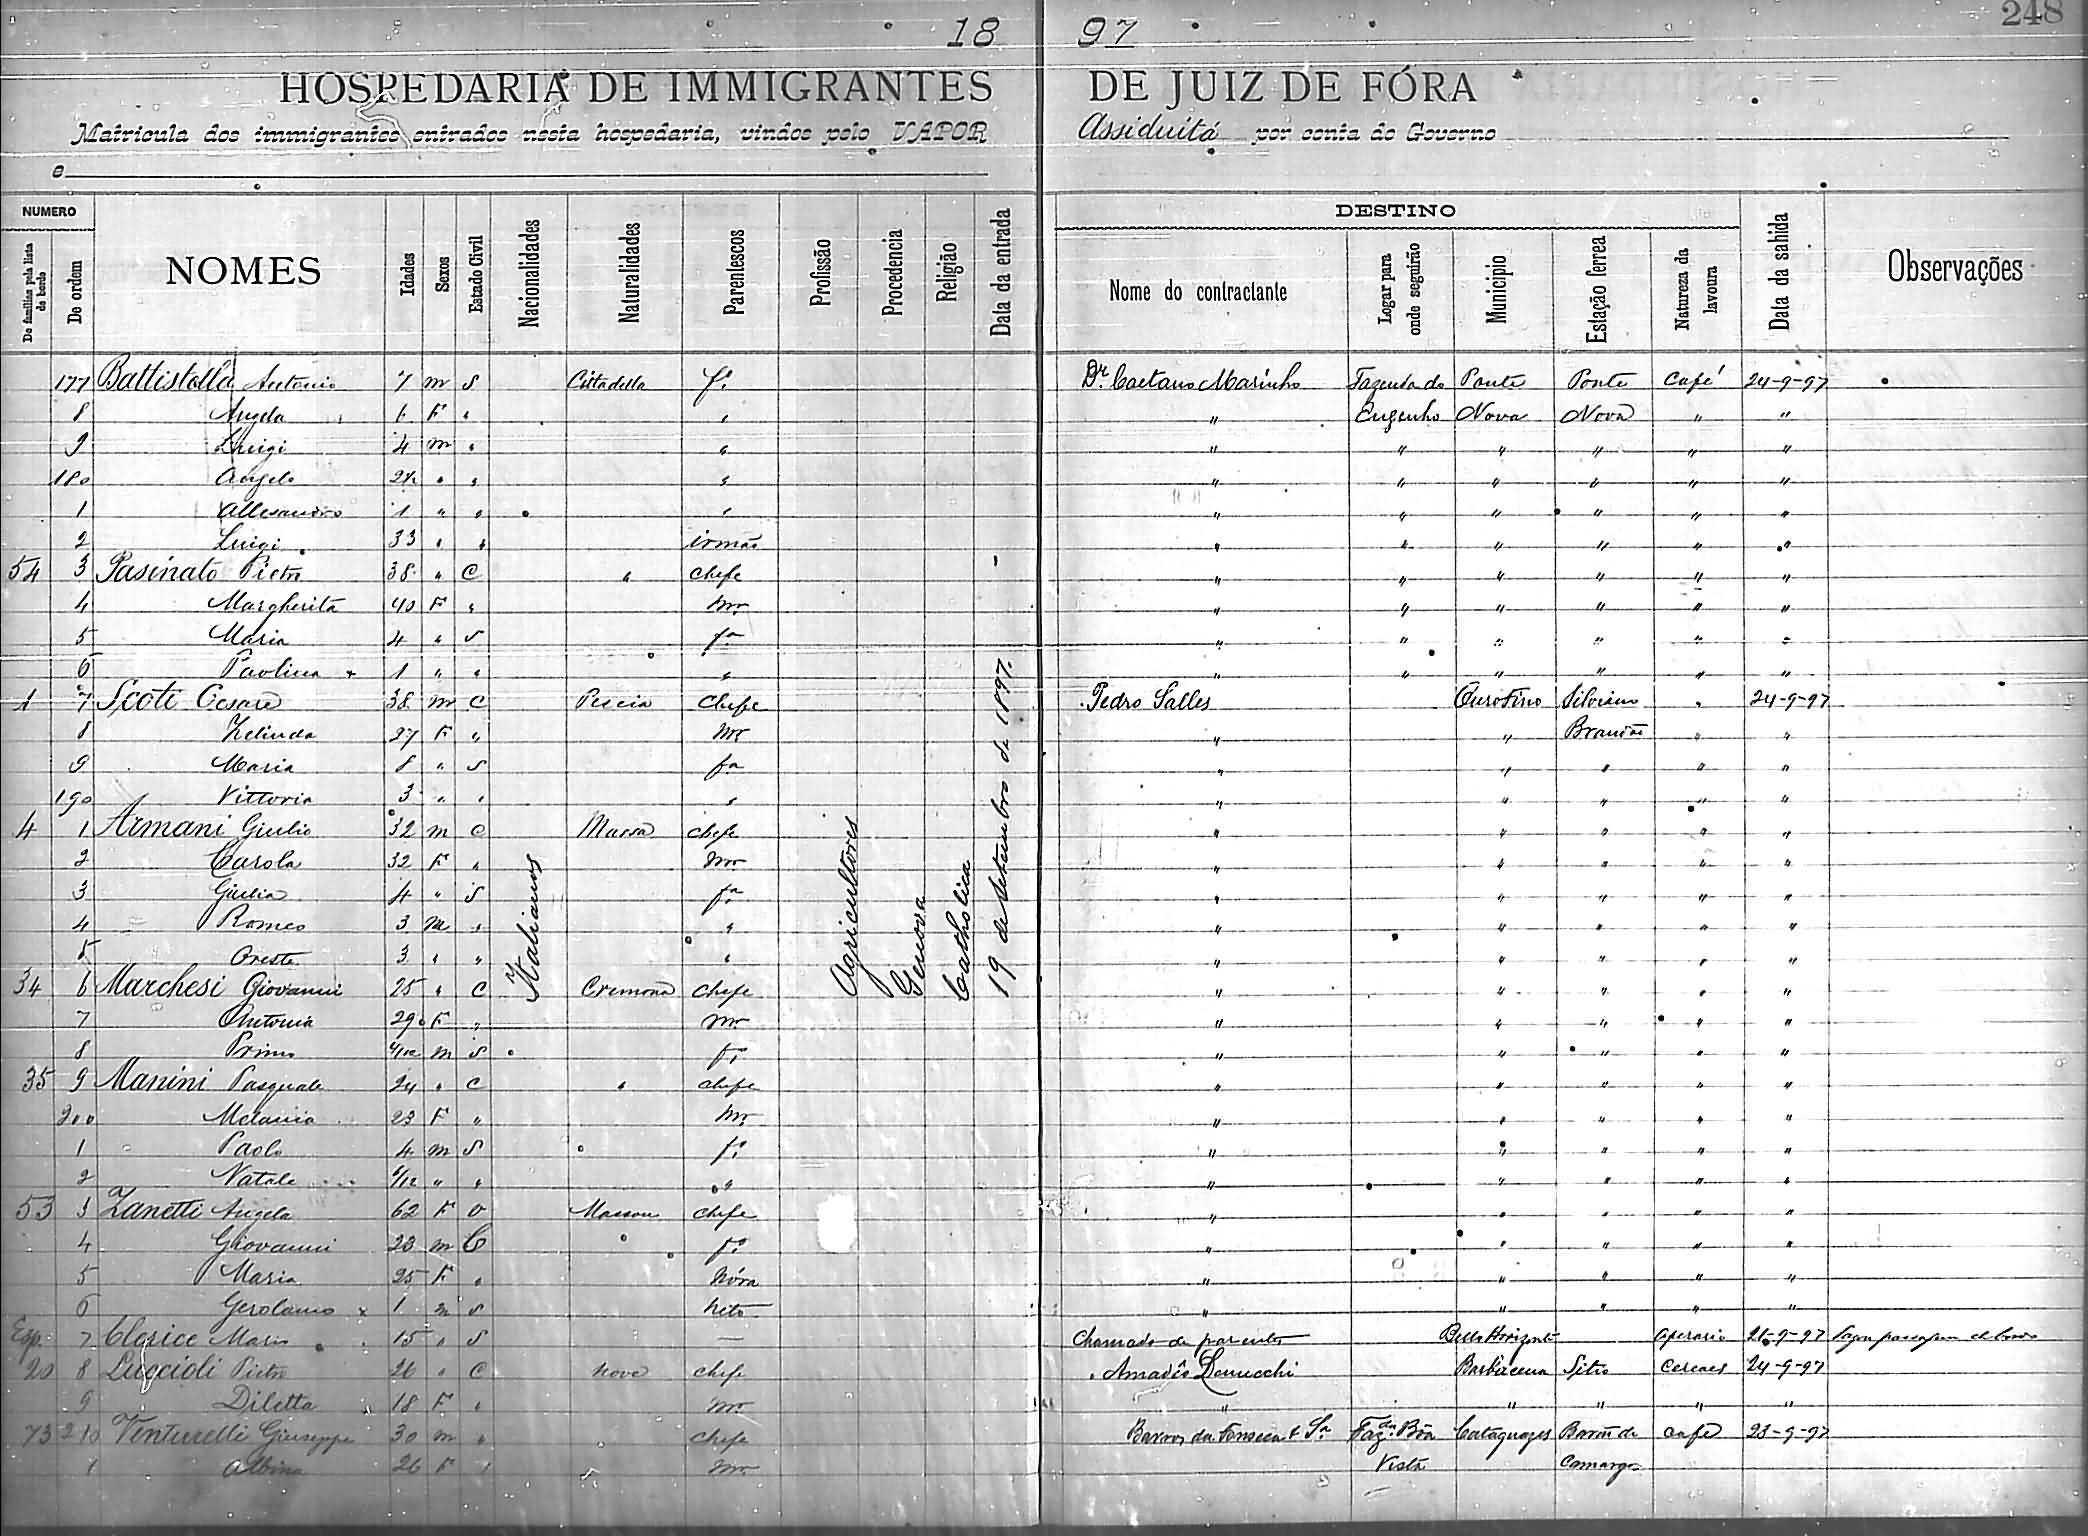 248
18 97
HOSPEDARIA DE IMMIGRANTES DE JUIZ DE FÓRA
Matricula dos immigrantes entrados nesta hospedaria, vindos pelo VAPOR Assiduitá por conta do Governo
e
NUMERO DESTINO
De familias pela lista de bordo De ordem NOMES Idades Sexos Estado Civil Nacionalidades Naturalidades Parentescos Profissão Procedencia Religião Data da entrada Nome do contractante Logar para onde seguirão Municipio Estação ferrea Natureza da lavoura Data da sahida Observações
177 Battistella Antonio 7 m S Cittadella fo Dr. Caetano Marinho Fazenda do Ponte Ponte Café 24-9-97
8 Angela 6 F " " " Engenho Nova Nova " "
9 Luigi 4 m " " " " " " " "
180 Angelo " " " " " " " " "
1 Allesandro 1 " " " " " " " " "
2 Luigi 33 " " irmão " " " " " "
54 3 Pasinato Pietro 38 " C " chefe " " " " " "
4 Margherita 40 F " mr " " " " " "
5 Maria 4 " S fa " " " " " "
6 Paolina + 1 " " " " " " " " "
1 7 Scoti Cesare 38 m C Pescia Chefe Pedro Salles Ouro Fino Silviano " 24-9-97
8 Zelinda 27 F " mr " " Brandão " "
9 Maria 8 " S fa " " " " "
190 Vittoria 3 " " " " " " " "
4 1 Armani Giulio 32 m C Massa chefe " " " " "
2 Carola 32 F " mr " " " " "
3 Giulia 4 " S fa " " " " "
4 Romeo 3 M " " " " " " "
5 Oreste 3 " " " " " " " "
34 6 Marchesi Giovanni 25 " C Cremona Chefe " " " " "
7 Antonia 29 F " mr " " " " "
8 Primo m S fo " " " " "
35 9 Manini Pasquale 24 " C " chefe " " " " "
200 Melania 23 F " mr " " " " "
1 Paolo 4 m S fo " " " " "
2 Natale " " " " " " " "
53 3 Zanetti Angela 62 F V chefe " " " " "
4 Giovanni 23 m C fo " " " " "
5 Maria 25 F " Nóra " " " " "
6 Gerolamo x 1 m S Neto " " " " "
Italianos
Agricultores
Genova
Catholica
19 de Setembro de 1897.
Esp. 7 Clerice Mario 15 " S — Chamado de parentes Bello Horizonte operario 21-9-97
20 8 Luccioli Pietro 26 " C Nove chefe Amadêo Barbacena Sitio Cereaes 24-9-97
9 Diletta 18 F " mr " " " " "
73 210 Venturelli Giuseppe 30 m " chefe Barros da Fonseca & Sa Faz.da Bôa Cataguazes Barão de café 23-9-97
1 Albina 26 F " mr Vista Camargos